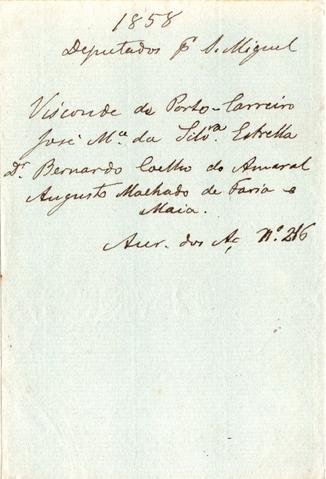 1858
Deputados p. S. Miguel
Visconde de Porto-Carreiro
José M.ª da Silv.ra Estrella
Dr. Bernardo Coelho do Amaral
Augusto Machado de Faria e
Maia.
Aur. dos Aç. N.º 216